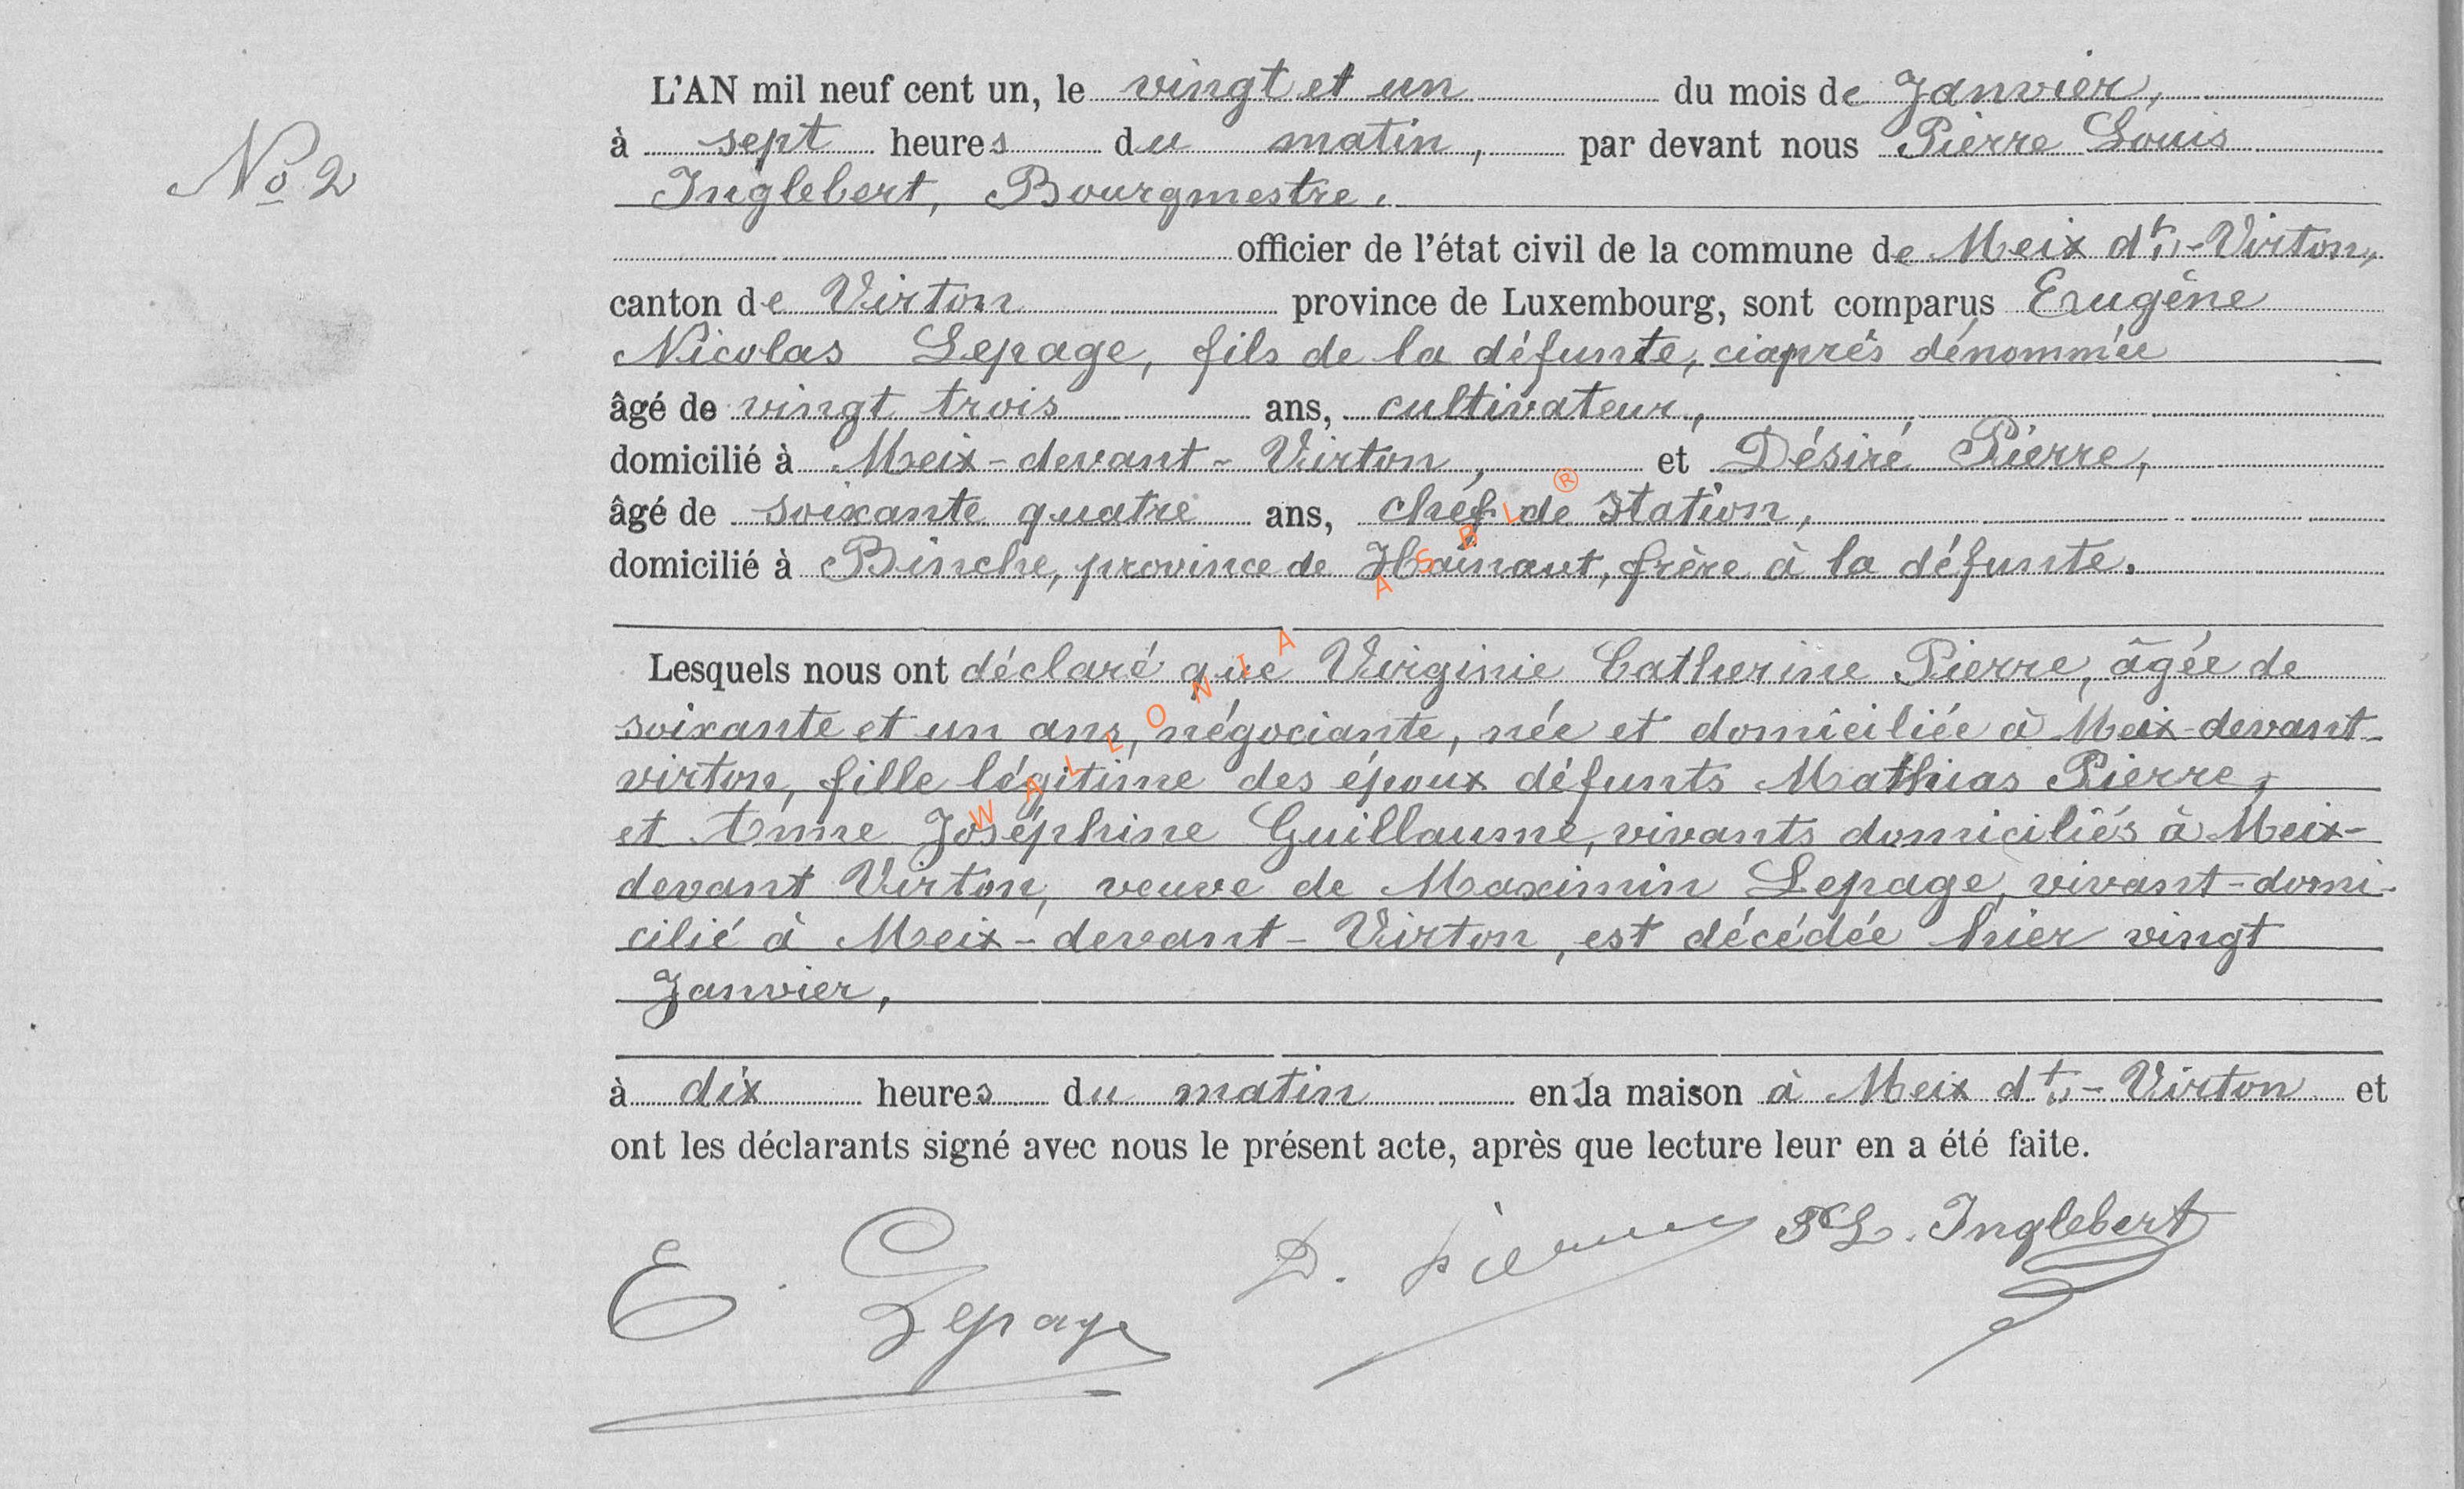 L'AN mil neuf cent un, le vingt et un du mois de Janvier,
N° 2
à sept heures du matin, par devant nous Pierre Louis
Inglebert, Bourgmestre.
officier de l'état civil de la commune de Meix dt-Virton,
canton de Virton province de Luxembourg, sont comparus Eugène
Nicolas Lepage, fils de la défunte, ciaprès dénommée
âgé de vingt trois ans, cultivateur,
domicilié à Meix-devant-Virton, et Désiré Pierre,
âgé de soixante quatre ans, chef de Station,
domicilié à Binche, province de Hainaut, frère à la défunte.
Lesquels nous ont déclaré que Virginie Catherine Pierre, âgée de
soixante et un ans, négociante, née et domiciliée à Meix-devant-
virton, fille légitime des époux défunts Mathias Pierre,
et Anne Joséphine Guillaume, vivants domiciliés à Meix-
devant Virton, veuve de Maximin Lepage, vivant-domi-
cilié à Meix-devant-Virton, est décédée hier vingt
Janvier,
à dix heures du matin en la maison à Meix dt-Virton et
ont les déclarants signé avec nous le présent acte, après que lecture leur en a été faite.
E. Lepage D. Pierre P L. Inglebert
WALLONIA ASBL ®